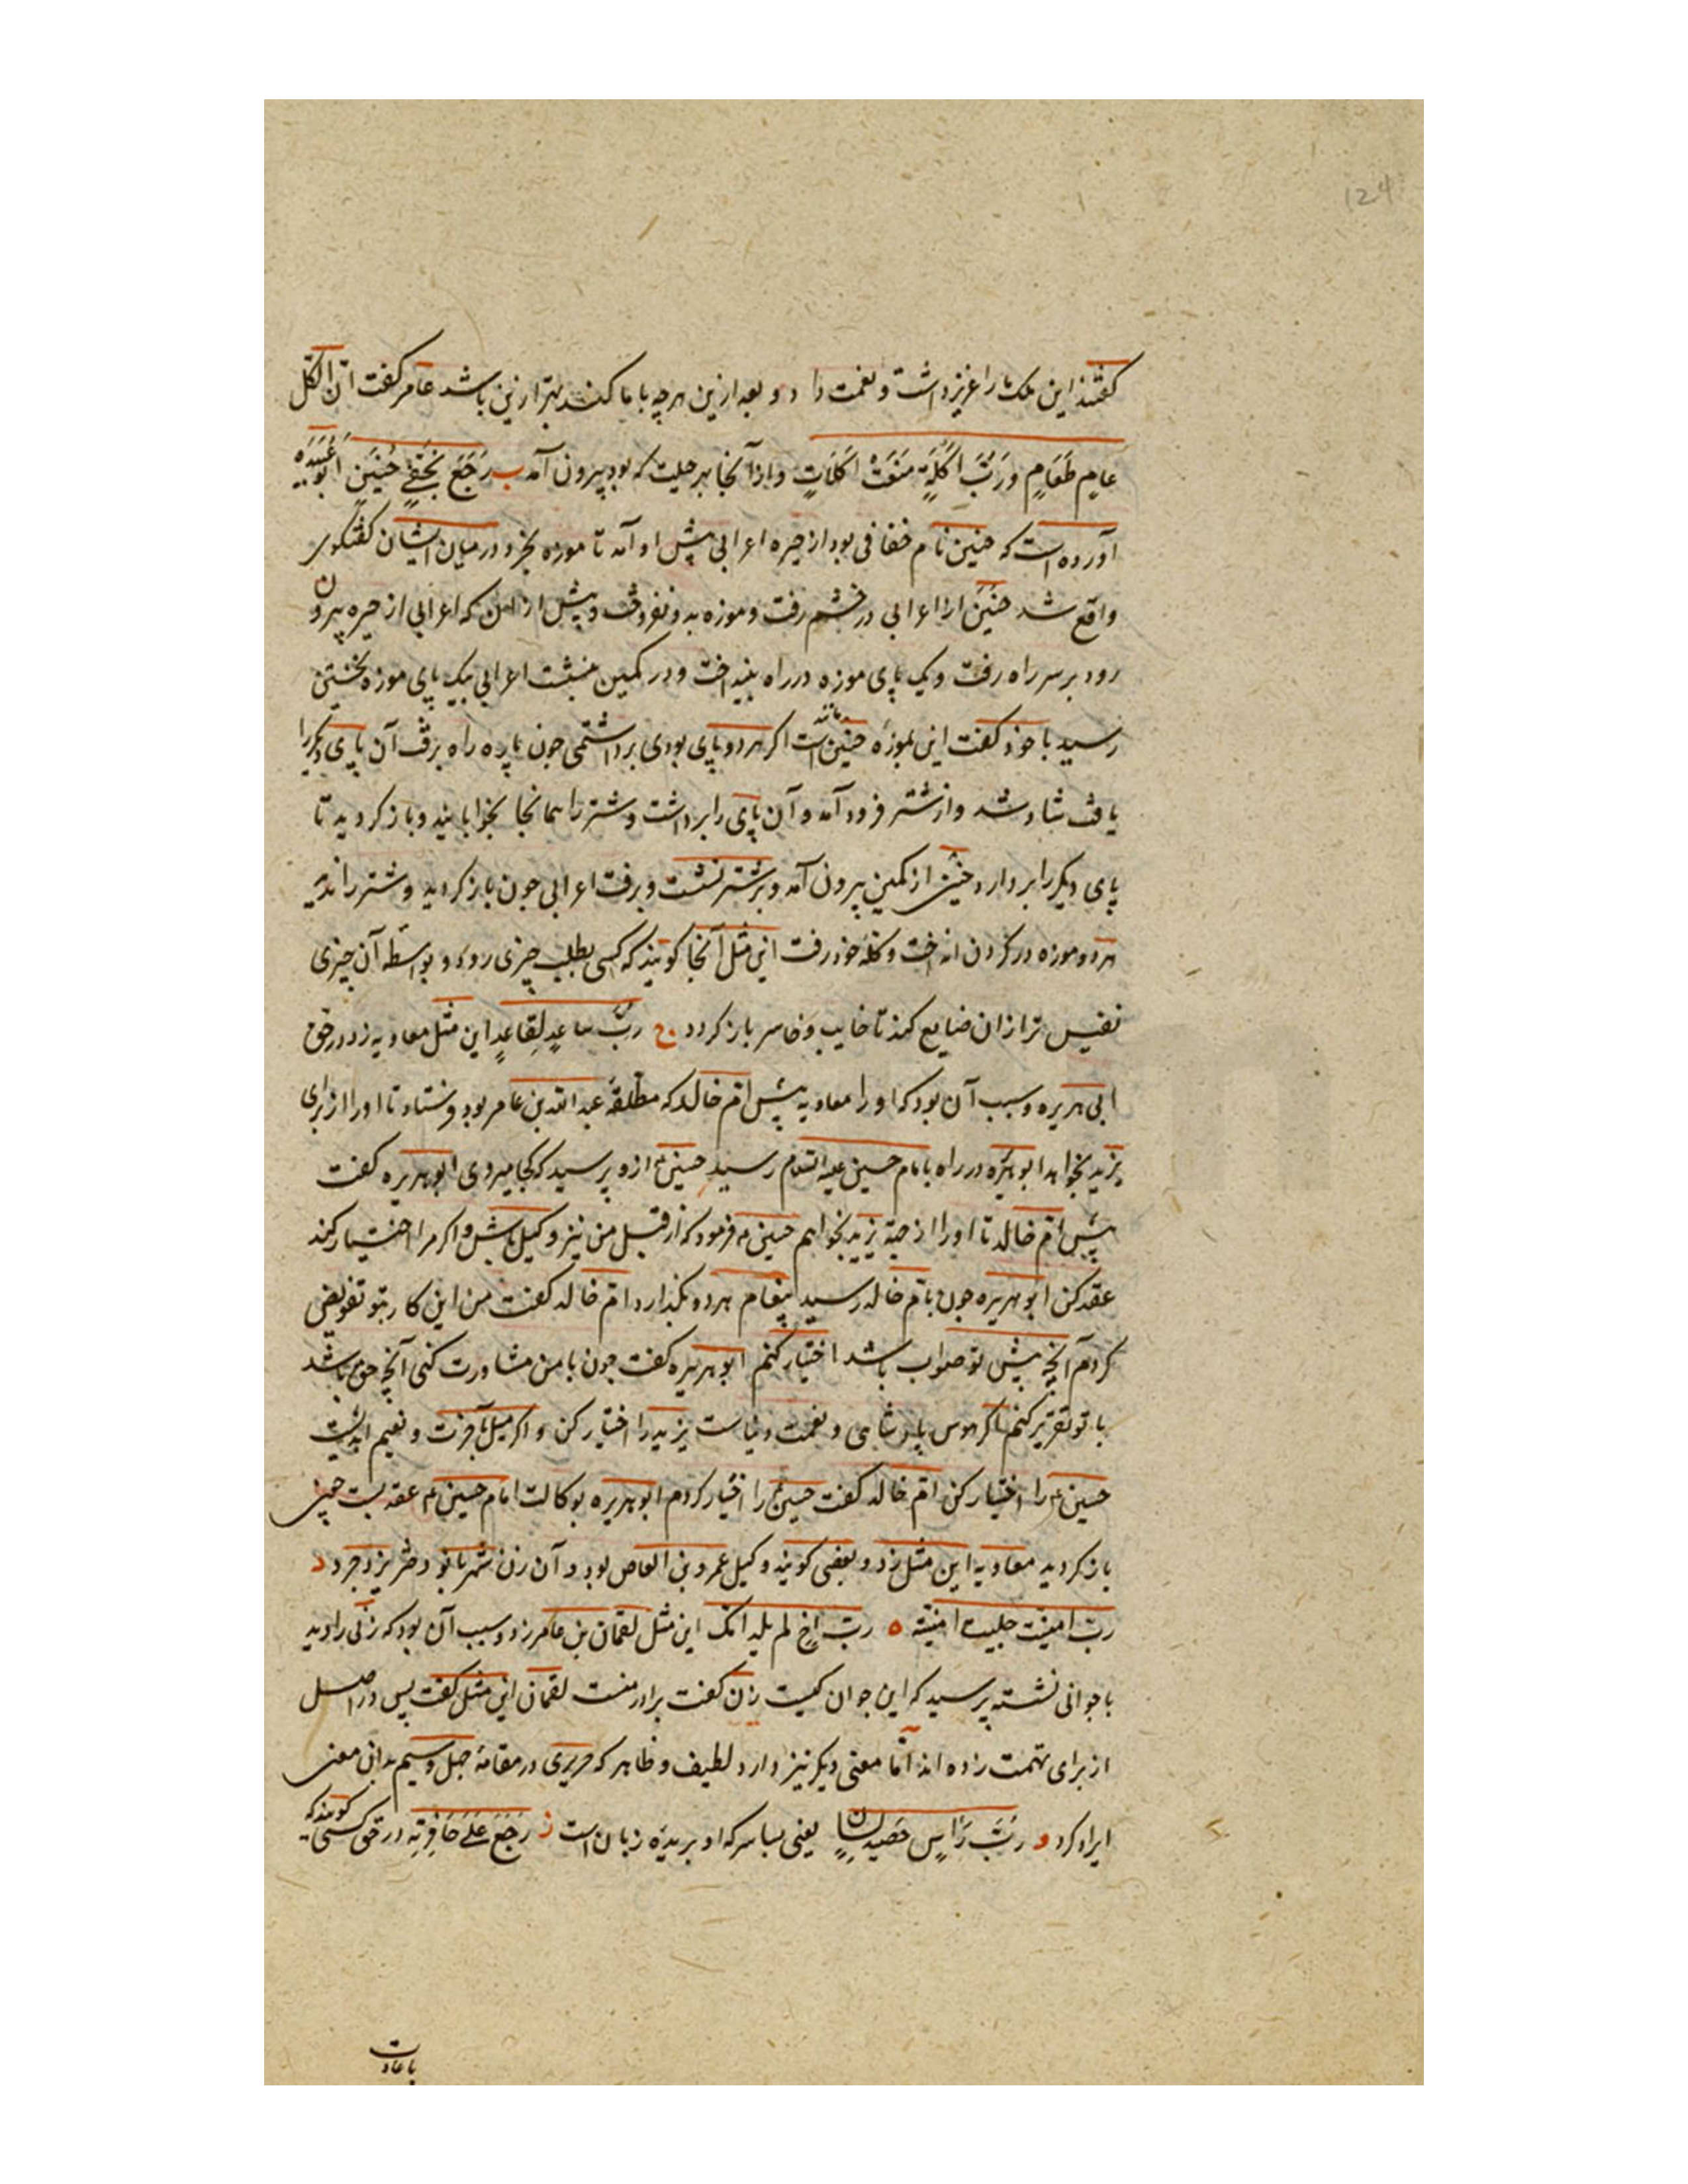 124
گفتند این ملک ما را عزیز داشت و نعمت داد و بعد ازین هرچه با ما کند بهتر ازین باشد عامر گفت ان لکل
عامٍ طَعَامٍ و رَبَّ اَکْلَةٍ مَنَعَتْ اَکَلَاتٍ و از آنجا بهر حیلت که بود بیرون آمد ب رَجَعَ بِخُفَّی حُنَینٍ ابو عُبَیْدَه
آورده است که حنین نام خفافی بود از حیره اعرابی پیش او آمد تا موزه بخرد و در میان ایشان گفتکوی
واقع شد حُنَین از اعرابی در خشم رفت و موزه بدو نفروخت و پیش از آن که اعرابی از حیره بیرون
رود بر سر راه رفت و یک پای موزه در راه بینداخت و در کمین بنشست اعرابی بیک پای موزه نخستین
رسید با خود گفت این بموزه حنین مانند است اکر هر دو پای بودی برداشتمی جون پاره راه برفت آن پای دیکر را
یافت شاد شد و از شتر فرود آمد و آن پای را برداشت و شتر را همانجا بخوابانید و باز کردید تا
پای دیکر را بردارد حنین از کمین بیرون آمد و بر شتر نشست و برفت اعرابی جون باز کردید و شتر را ندید
هر دو موزه در کردن انداخت و بخانه خود رفت این مثل آنجا کویند که کسی بطلب چیزی رود و بواسطه آن چیزی
نفیس تر از آن ضایع کند تا خایب و خاسر باز کردد ج ربّ ساعٍدٍ لِقاعدٍ این مثل معاویه زد در حق
ابی هریره و سبب آن بود که او را معاویه پیش ام خالد که مطلقهٔ عبد الله بن عامر بود فرستاد تا او را از برای
یزید بخواهد ابو هریره در راه بامام حسین علیه السلام رسید حسین ع ازو پرسید که کجا میروی ابو هریره گفت
پیش ام خالد تا او را از جهة یزید بخواهم حسین ع فرمود که از قبل من نیز وکیل باش و اکر مرا اختیار کند
عقد کن ابو هریره جون بام خالد رسید پیغام هر دو بگذارد ام خالد گفت من این کار بتو تفویض
کردم آنچه پیش تو صواب باشد اختیار کنم ابو هریره گفت جون با من مشاورت کنی آنچه حق باشد
با تو تقریر کنم اکر هوس پادشاهی و نعمت دنیاست یزید را اختیار کن و اکر میل بآخرت و نعیم ابدیست
حسین ع را اختیار کن ام خالد گفت حسین ع را اختیار کردم ابو هریره بوکالت امام حسین ع عقد بست چون
باز کردید معاویه این مثل زد و بعضی کویند وکیل عمرو بن العاص بود و آن زن شهربانو دختر یزدجرد د
ربّ امنیّت جلبت امنیّة ه ربّ اخٍ لم یلد امّک این مثل لقمان بن عامر زد و سبب آن بود که زنی را دید
با جوانی نشسته پرسید که این جوان کیست زن گفت برادر منست لقمان این مثل گفت پس در اصل
از برای تهمت زده اند اما معنی دیکر نیز دارد لطیف و ظاهر که حریری در مقامهٔ بدان معنی
ایراد کرد و ربَّ رَأسٍ حَصید لسانٍ یعنی بسا سر که او بریدهٔ زبان است ز رَجَعَ عَلَی حَافِرَتِه در حق کسی کویند که
با عادت